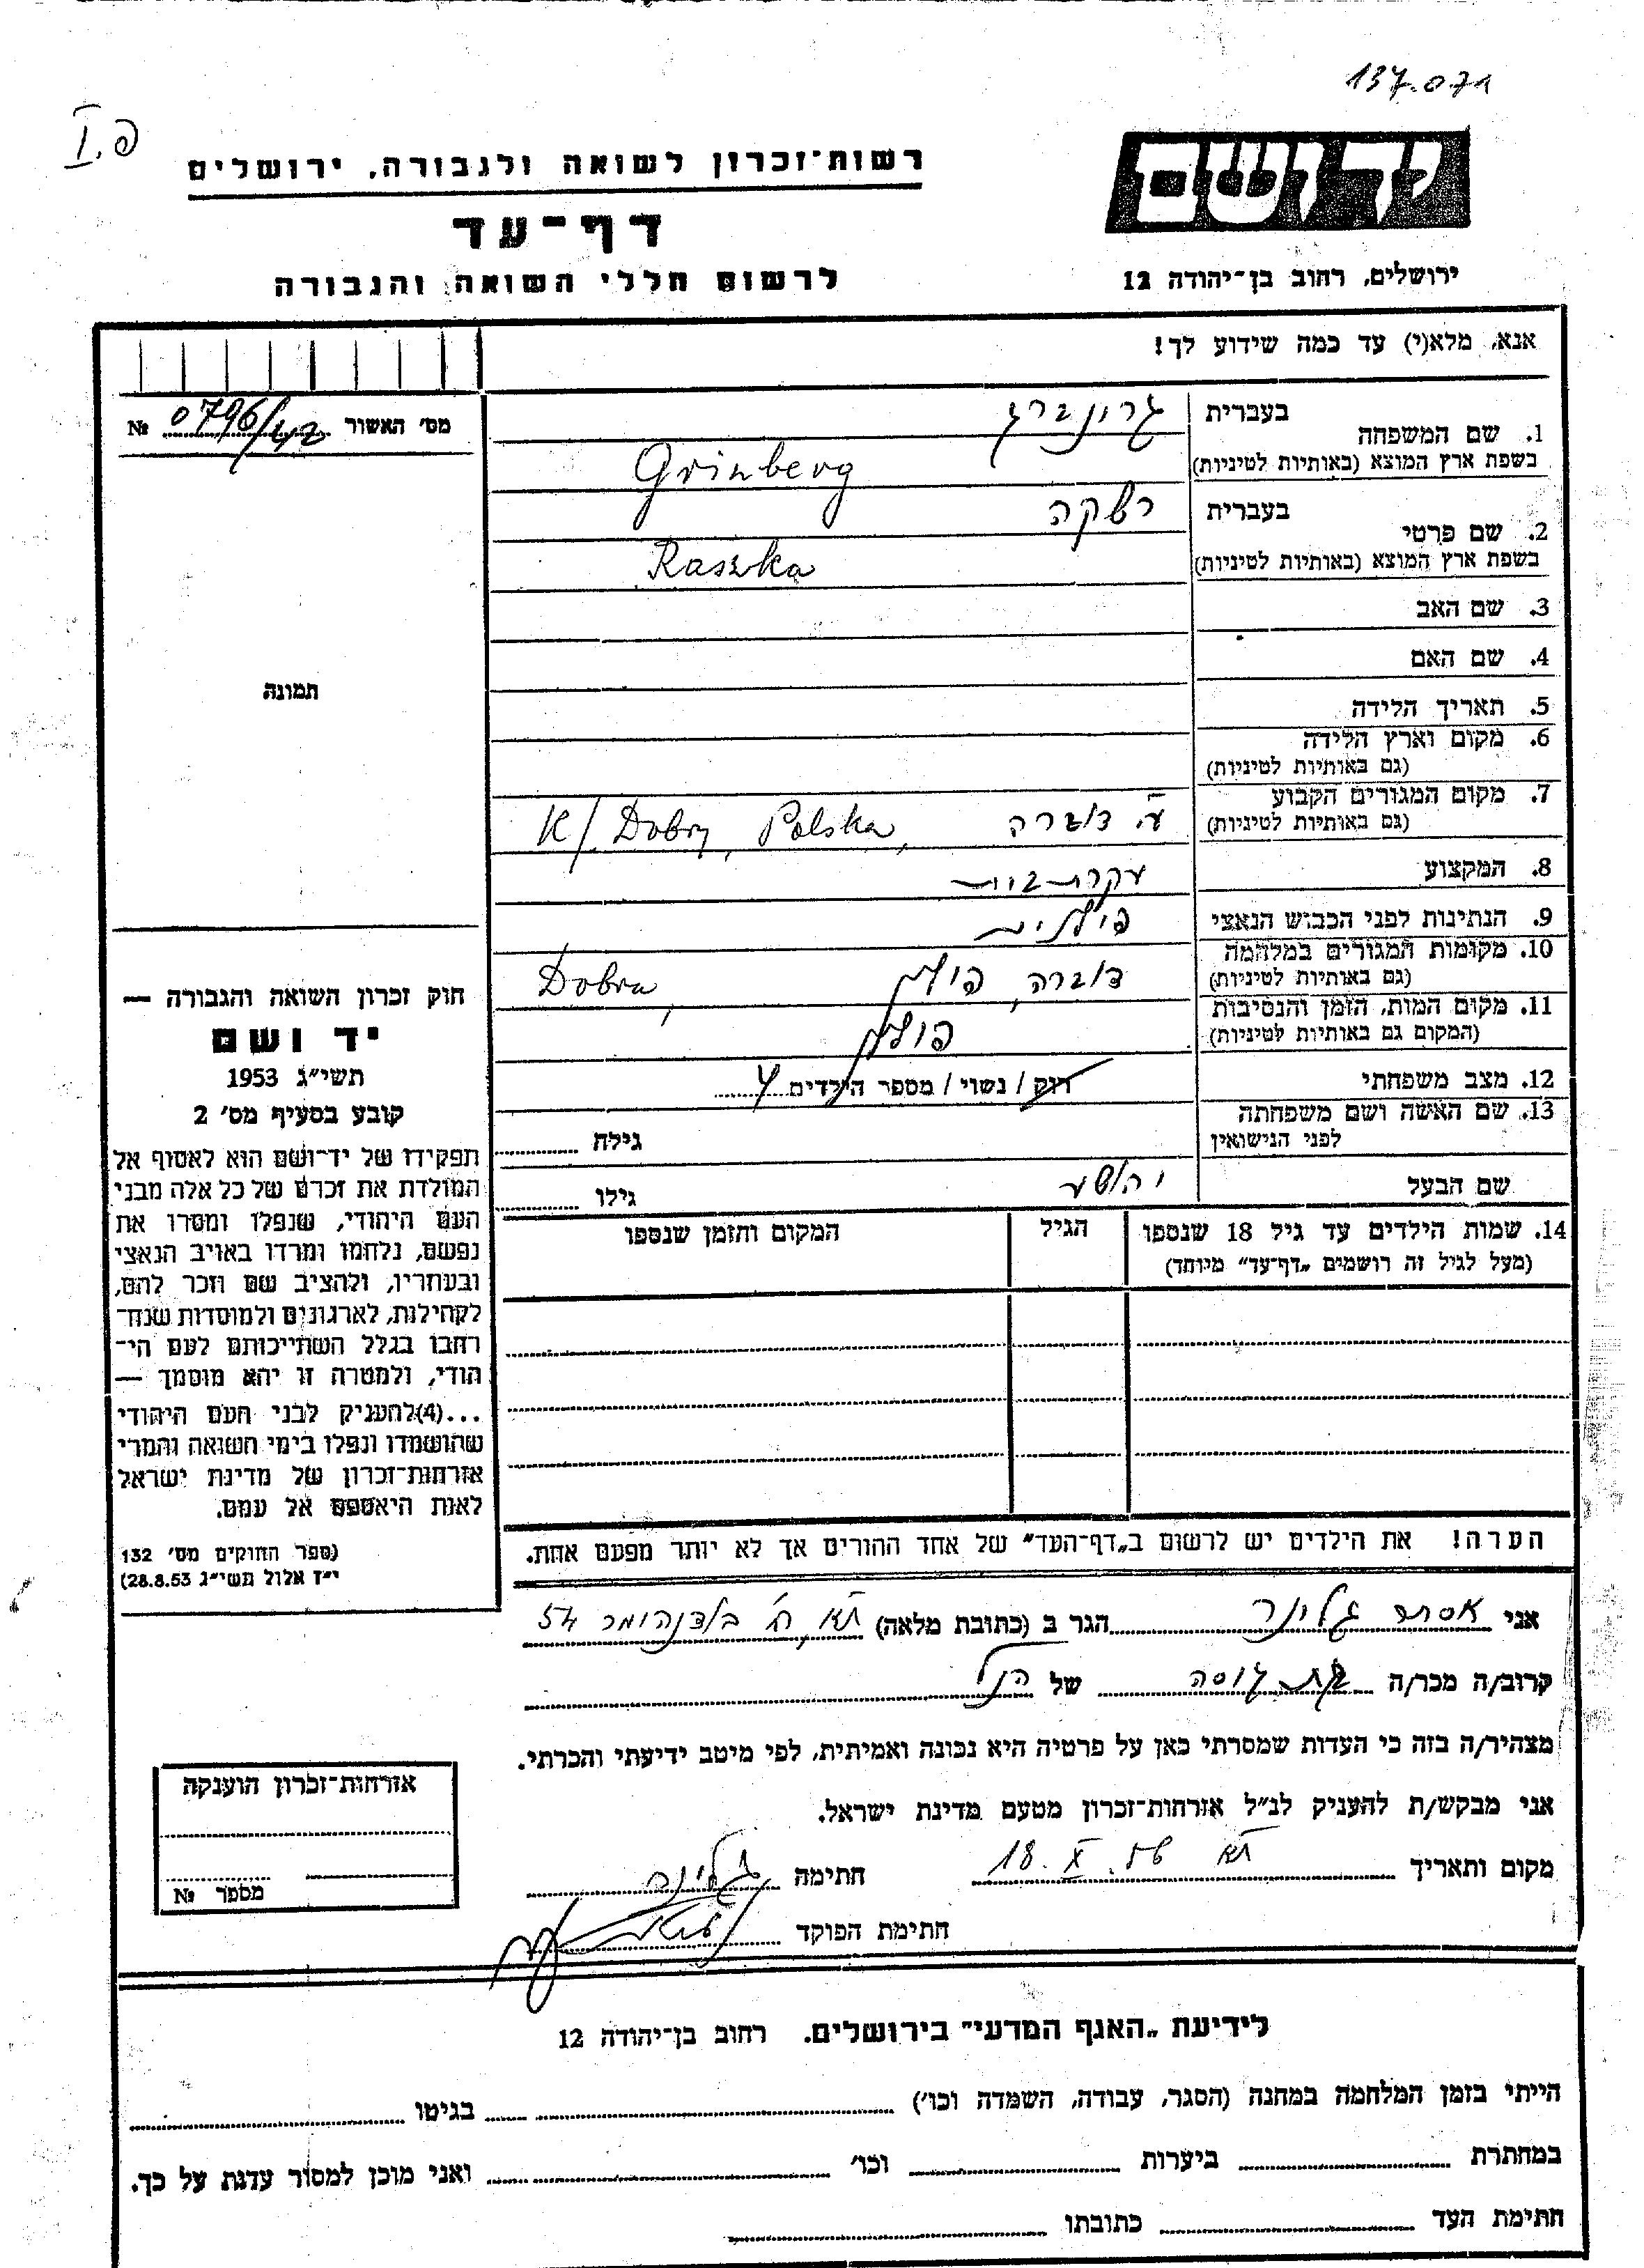 137.071
I.פ
ידושם
רשות־זכרון לשואה ולגבורה, ירושלים
דף־עד
לרשום חללי השואה והגבורה
ירושלים, רחוב בן־יהודה 12
אנא, מלא(י) עד כמה שידוע לך!
מס׳ האשור 0796/42 №
1. שם המשפחה
בעברית גרונברג
בשפת ארץ המוצא (באותיות לטיניות) Grinberg
2. שם פרטי
בעברית רשקה
בשפת ארץ המוצא (באותיות לטיניות) Raszka
3. שם האב
4. שם האם
תמונה
5. תאריך הלידה
6. מקום וארץ הלידה
(גם באותיות לטיניות)
7. מקום המגורים הקבוע
(גם באותיות לטיניות) דוברה K/. Dobry, Polska,
8. המקצוע עקרת בית
9. הנתינות לפני הכבוש הנאצי פולנית
10. מקומות המגורים במלחמה
(גם באותיות לטיניות) דוברה, פולין Dobra,
11. מקום המות, הזמן והנסיבות
(המקום גם באותיות לטיניות) פולין
12. מצב משפחתי רוק / נשוי / מספר הילדים 4
13. שם האשה ושם משפחתה
לפני הנישואין גילה
שם הבעל יהושע גילו
14. שמות הילדים עד גיל 18 שנספו הגיל המקום והזמן שנספו
(מעל לגיל זה רושמים „דף־עד” מיוחד)
חוק זכרון השואה והגבורה —
יד ושם
תשי״ג 1953
קובע בסעיף מס׳ 2
תפקידו של יד־ושם הוא לאסוף אל
המולדת את זכרם של כל אלה מבני
העם היהודי, שנפלו ומסרו את
נפשם, נלחמו ומרדו באויב הנאצי
ובעוזריו, ולהציב שם וזכר להם,
לקהילות, לארגונים ולמוסדות שנח־
רבו בגלל השתייכותם לעם הי־
הודי, ולמטרה זו יהא מוסמך —
...(4)להעניק לבני העם היהודי
שהושמדו ונפלו בימי השואה והמרי
אזרחות־זכרון של מדינת ישראל
לאות היאספם אל עמם.
(ספר החוקים מס׳ 132
י״ז אלול תשי״ג 28.8.53)
הערה! את הילדים יש לרשום ב„דף־העד” של אחד ההורים אך לא יותר מפעם אחת.
אני אסתר גלינר הגר ב (כתובת מלאה) ת״א, רח׳ 54
קרוב/ה מכר/ה בת גוסה של הנ״ל
מצהיר/ה בזה כי העדות שמסרתי כאן על פרטיה היא נכונה ואמיתית, לפי מיטב ידיעתי והכרתי.
אני מבקש/ת להעניק לנ״ל אזרחות־זכרון מטעם מדינת ישראל.
מקום ותאריך ת״א 18. X. 56 חתימה גלינר
חתימת הפוקד
אזרחות־זכרון הוענקה
מספר №
לידיעת „האגף המדעי” בירושלים. רחוב בן־יהודה 12
הייתי בזמן המלחמה במחנה (הסגר, עבודה, השמדה וכו׳) בגיטו
במחתרת ביערות וכו׳ ואני מוכן למסור עדות על כך.
חתימת העד כתובתו